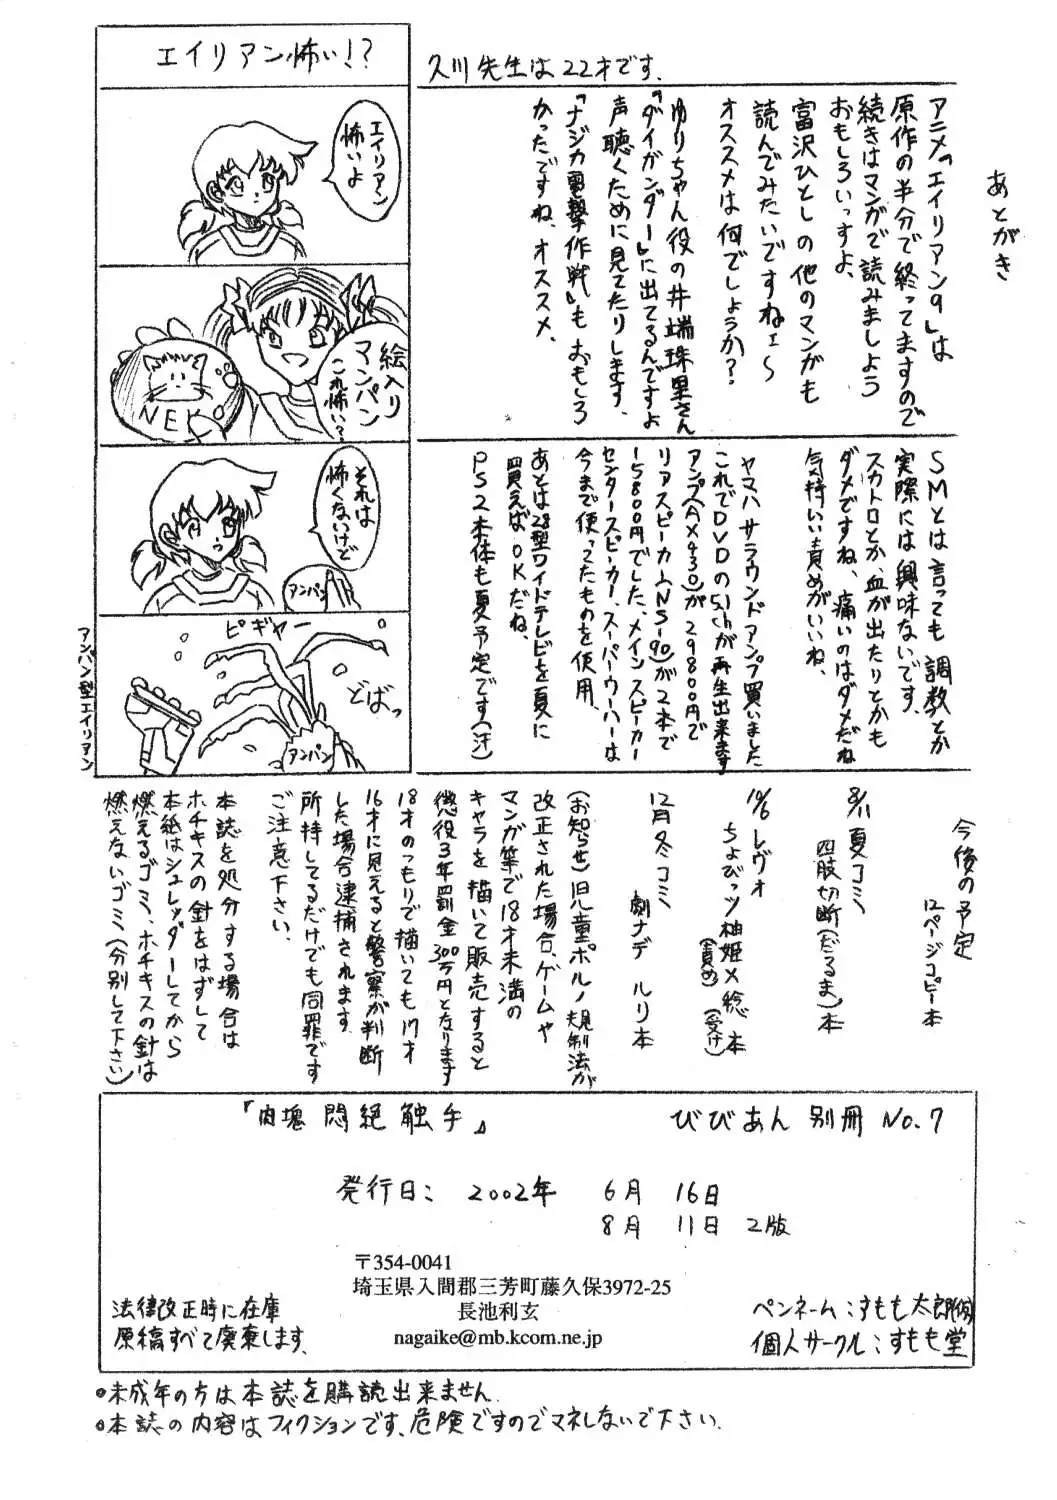 エイリアン怖い!?
エイリアン
怖いよ
絵入り
マンパン
これ怖い?
NEK
それは
怖くないけど
アンパン
ピギャー
どばっ
アンパン
アンパン型エイリアン
久川先生は22才です.
あとがき
アニメ『エイリアン9』は
原作の半分で終ってますので
続きはマンガで読みましょう
おもしろいっすよ、
富沢ひとしの他のマンガも
読んでみたいですねェ〜
オススメは何でしょうか?
ゆりちゃん役の井端珠里さん
『ダイガンダー』に出てるんですよ
声聴くために見てたりします、
『ナジカ電撃作戦』もおもしろ
かったですね、オススメ、
SMとは言っても調教とか
実際には興味ないです。
スカトロとか、血が出たりとかも
ダメですね、痛いのはダメだね
気持いい責めがいいね、
ヤマハサラウンドアンプ買いました
これでDVDの5.1chが再生出来ます
アンプ(AX430)が29800円で
リアスピーカーNS-90)が2本で
15800円でした、メインスピーカー
センタースピーカー、スーパーウーハーは
今まで使ってたものを使用、
あとは28型ワイドテレビを夏に
買えばOKだね、
PS2本体も夏予定です(汗)
今後の予定
12ページコピー本
8/11夏コミ
四肢切断(だるま)本
10/6レヴォ
ちょびっツ柚姫×稔本
(責め)(受け)
12月冬コミ
劇ナデ ルリ本
(お知らせ)児童ポルノ規制法が
改正された場合、ゲームや
マンガ等で18才未満の
キャラを描いて販売すると
懲役3年罰金300万円となります
18才のつもりで描いても17才
16才に見えると警察が判断
した場合逮捕されます
所持してるだけでも同罪です
ご注意下さい.
本誌を処分する場合は
ホチキスの針をはずして
本紙はシュレッダーしてから
燃えるゴミ、ホチキスの針は
燃えないゴミ(分別して下さい)
『肉塊 悶絶 触手』 びびあん 別冊 No.7
発行日: 2002年 6月 16日
8月 11日 2版
〒354-0041
埼玉県入間郡三芳町藤久保3972-25
長池利玄
nagaike@mb.kcom.ne.jp
法律改正時に在庫
原稿すべて廃棄します.
ペンネーム:すもも太郎(仮)
個人サークル:すもも堂
◦未成年の方は本誌を購読出来ません.
◦本誌の内容はフィクションです、危険ですのでマネしないで下さい.